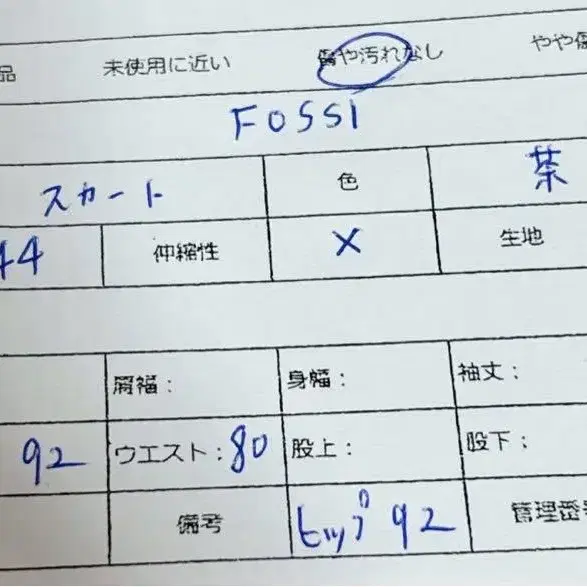 品 未使用に近い 傷や汚れなし やや傷
FOSSI
スカート 色 茶
44 伸縮性 × 生地
肩幅： 身幅： 袖丈：
92 ウエスト：80 股上： 股下：
備考 ヒップ 92 管理番号